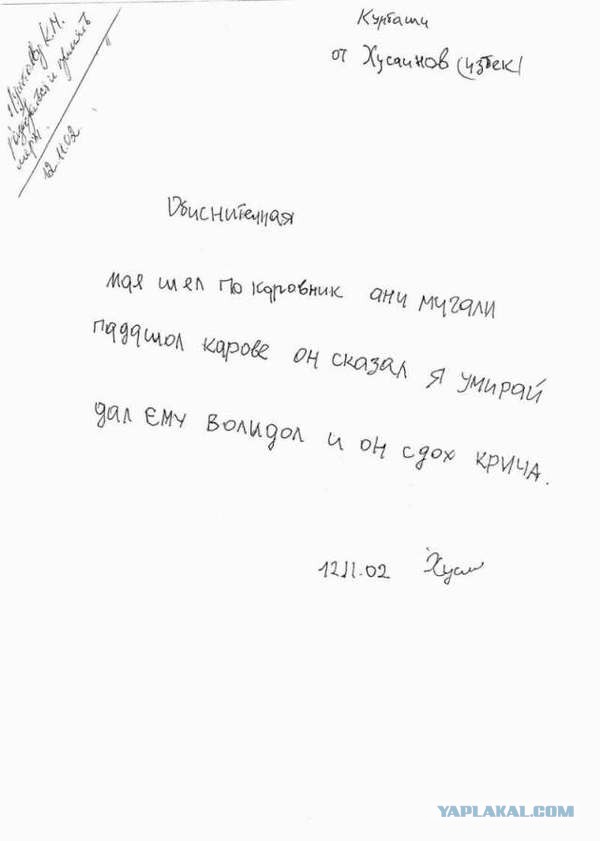 К.М.
разобраться и принять
меры.
12.11.02.
Курташи
от Хусаинов (узбек)
Обиснителная
мая шел по каровник ани мучали
падашол карове он сказал я умирай
дал ему волидол и он сдох крича.
12.11.02 Хуса
YAPLAKAL.COM